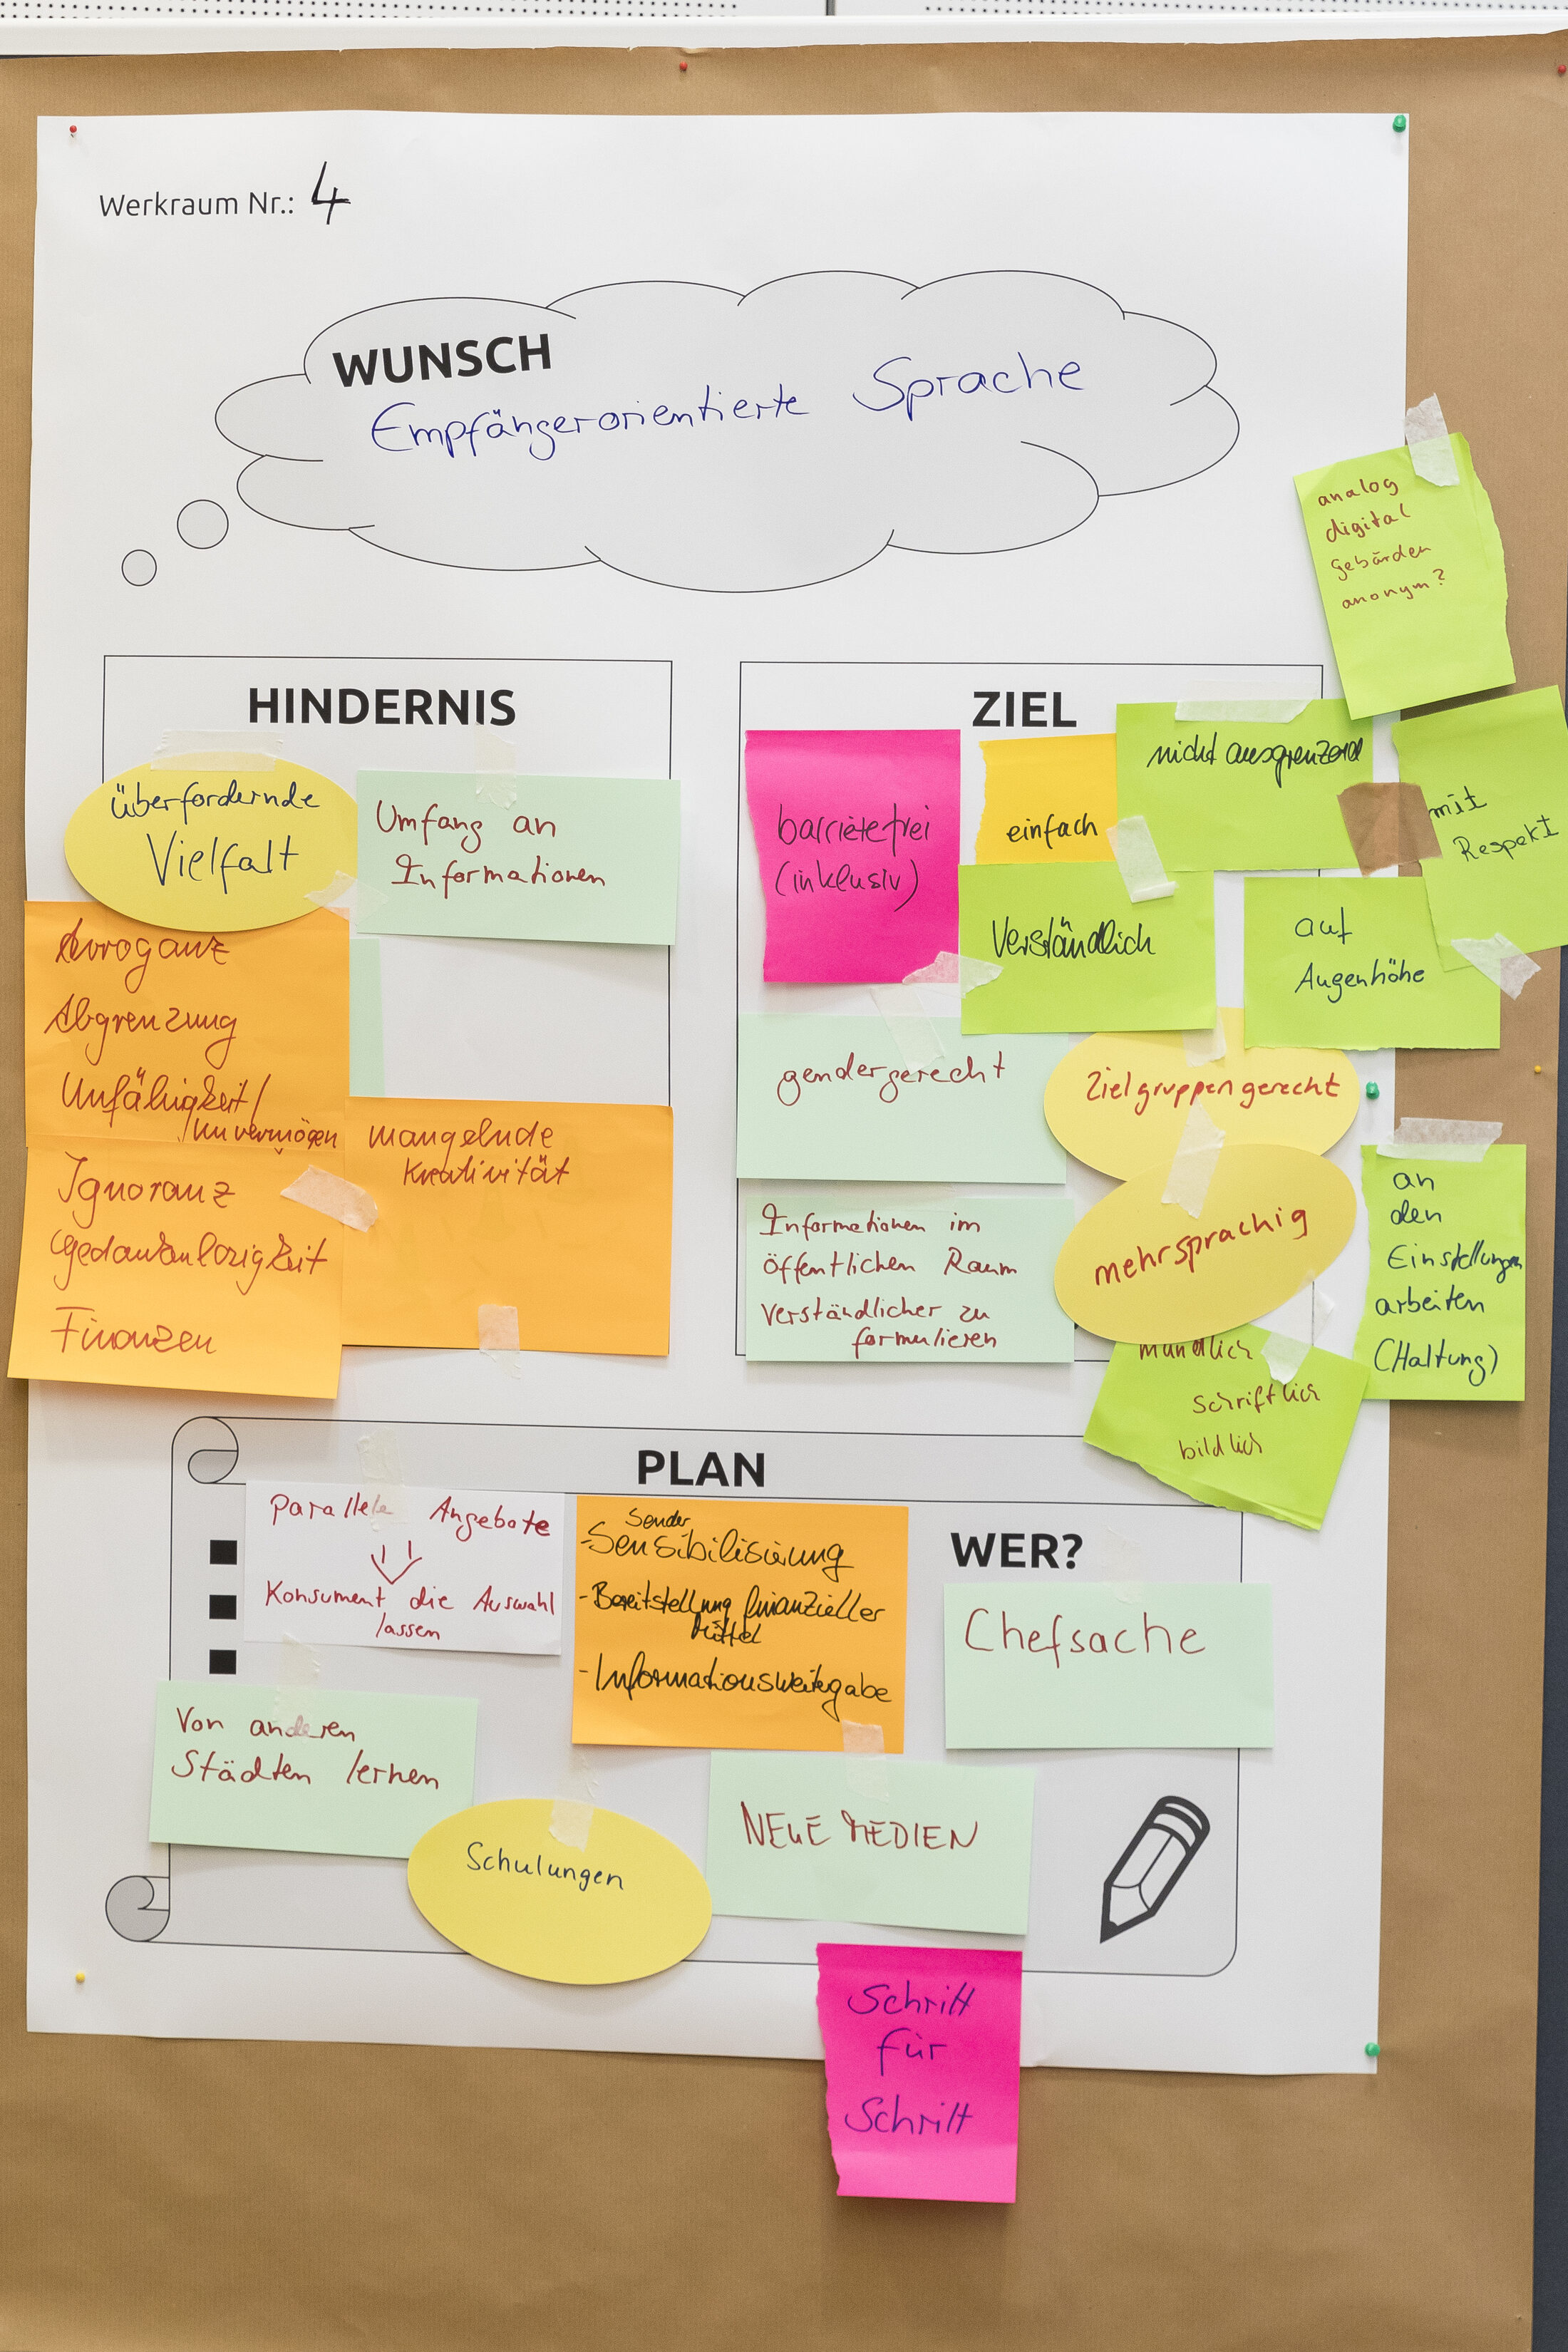 Werkraum Nr.: 4
WUNSCH
Empfängerorientierte Sprache
analog
digital
Gebärden
anonym?
HINDERNIS
überfordernde
Vielfalt
Umfang an
Informationen
Arroganz
Abgrenzung
Unfähigkeit/
/Unvermögen
Ignoranz
Gedankenlosigkeit
Finanzen
mangelnde
Kreativität
ZIEL
barrierefrei
(inklusiv)
einfach
nicht ausgrenzend
mit
Respekt
Verständlich
auf
Augenhöhe
gendergerecht
Zielgruppengerecht
Informationen im
öffentlichen Raum
verständlicher zu
formulieren
mehrsprachig
an
den
Einstellungen
arbeiten
(Haltung)
mündlich
schriftlich
bildlich
PLAN
Parallele Angebote
Konsument die Auswahl
lassen
Sender
-Sensibilisierung
-Bereitstellung finanzieller
Mittel
-Informationsweitergabe
WER?
Chefsache
Von anderen
Städten lernen
Schulungen
NEUE MEDIEN
Schritt
für
Schritt